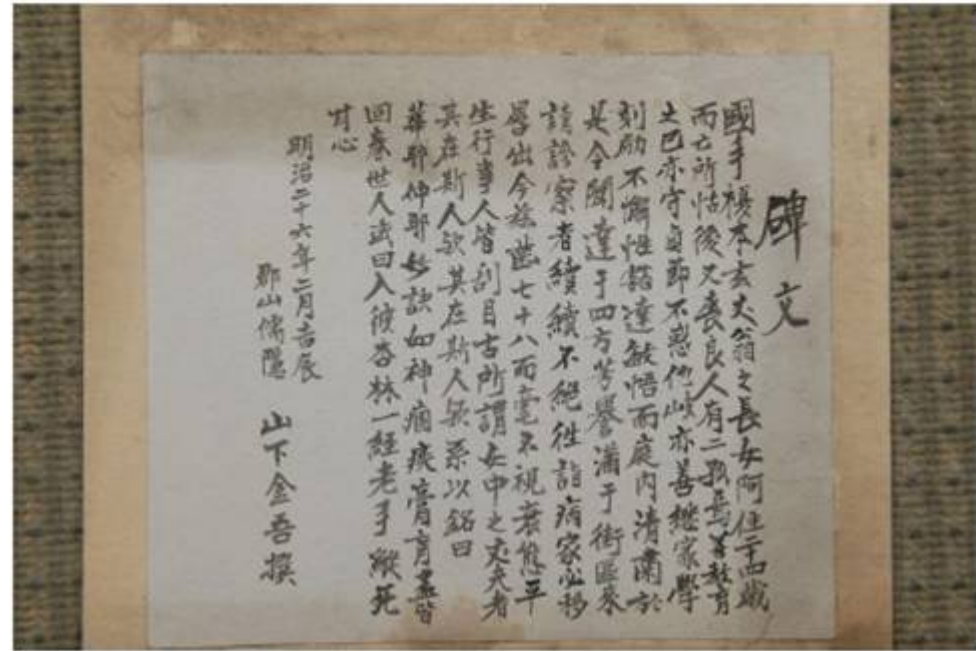 碑文
國手榎本玄丈翁之長女阿住二十四歳
而亡所怙後又喪良人有二孤焉善教育
之已亦守貞節不惑他岐亦善継家學
刻励不懈性豁達敏悟而庭内清肅於
是令聞達于四方芳譽満于街区來
請診察者續續不絶往詣病家必移
晷出今茲歯七十八而毫不視衰態平
生行事人皆刮目古所謂女中之丈夫者
其在斯人欤其在斯人欤系以銘曰
華耶仲耶妙訣如神痼疾膏肓盡皆
回春世人試回入彼杏林一経老手縦死
甘心
明治二十六年二月吉辰
郡山儒隠 山下金吾撰